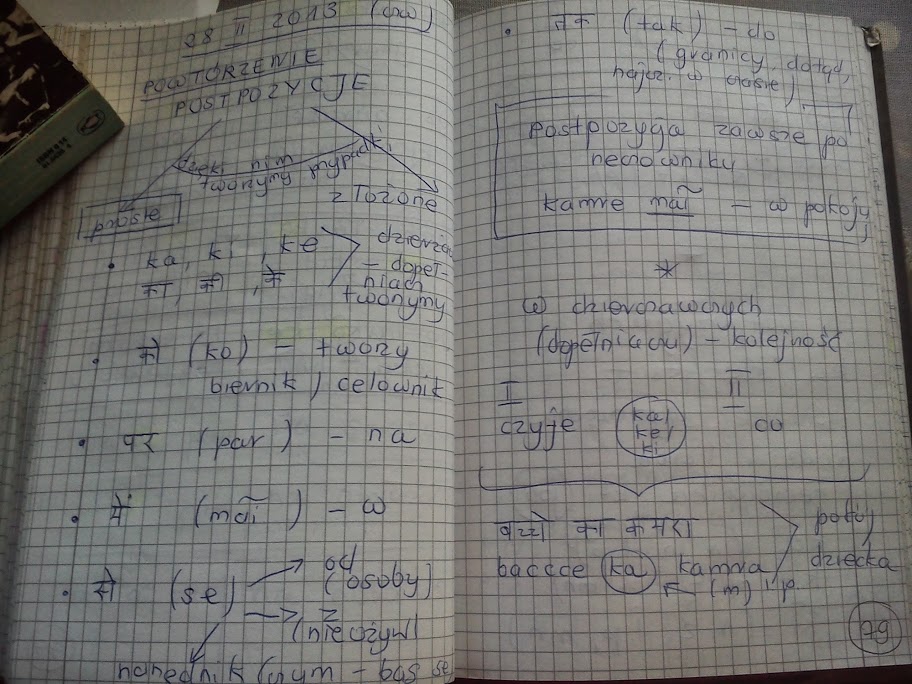 28 II 2013 (czw)
POWTÓRZENIE
POSTPOZYCJE
dzięki nim
tworzymy przypadki
proste
złożone
• ka, ki, ke
का, की, के
dzierżaw
– dopeł-
niacz
tworzymy
• को (ko) – tworzy
biernik, celownik
• पर (par) – na
• में (mãi) – w
• से (se)
od
(osoby)
z
(nieożyw)
narzędnik (czym – bas se
• तक (tak) – do
(granicy, dotąd,
najcz. w czasie)
Postpozycja zawsze po
rzeczowniku
kamre mãi – w pokoju
*
w dzierżawczych
(dopełniaczu) – kolejność
I
II
czyje
ka,
ke,
ki
co
बच्चे का कमरा
baccce ka kamra
(m) l.p.
pokój
dziecka
79